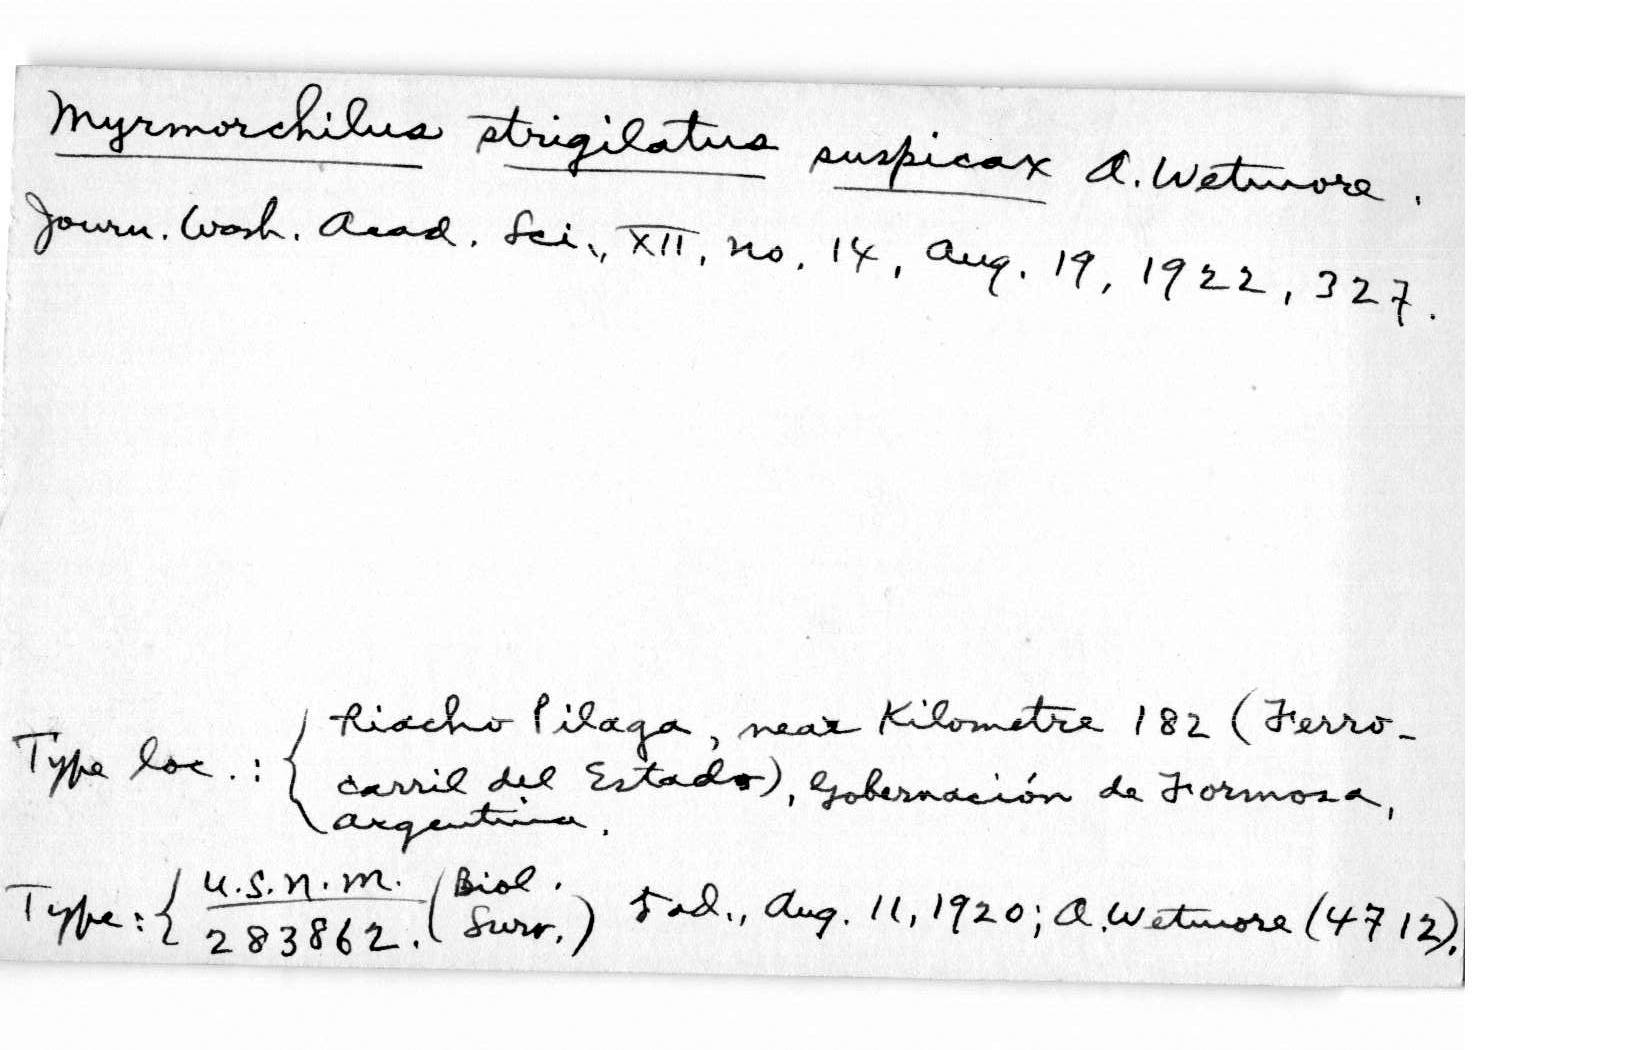 Myrmorchilus strigilatus suspicax A. Wetmore.
Journ. Wash. Acad. Sci., XII, no. 14, Aug. 19, 1922, 327.
Type loc.: { Riacho Pilaga, near Kilometre 182 (Ferro-
carril del Estado), Gobernación de Formosa,
Argentina.
Type: { U.S.N.M. (Biol.
283862. Surv.) ad., Aug. 11, 1920; A. Wetmore (4712).